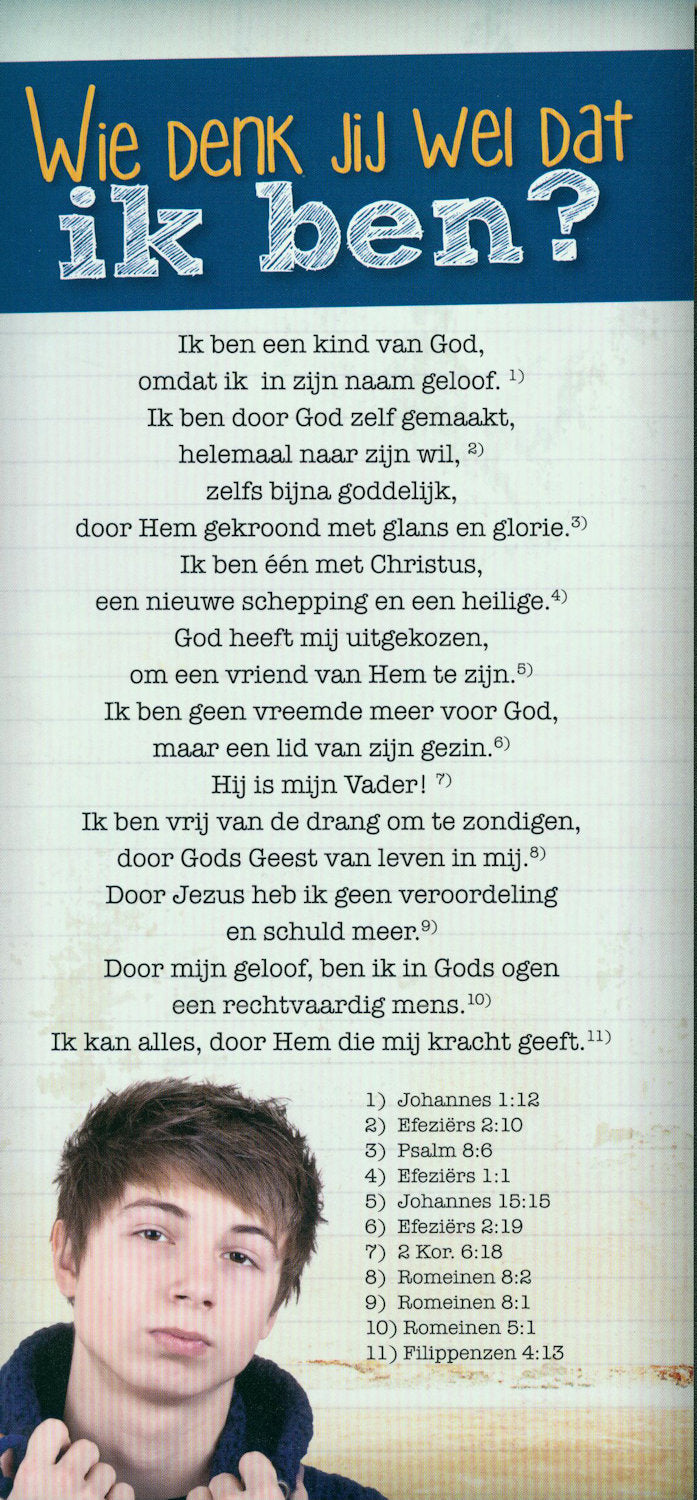 Wie denk jij wel dat
ik ben?
Ik ben een kind van God,
omdat ik in zijn naam geloof. 1)
Ik ben door God zelf gemaakt,
helemaal naar zijn wil, 2)
zelfs bijna goddelijk,
door Hem gekroond met glans en glorie.3)
Ik ben één met Christus,
een nieuwe schepping en een heilige.4)
God heeft mij uitgekozen,
om een vriend van Hem te zijn.5)
Ik ben geen vreemde meer voor God,
maar een lid van zijn gezin.6)
Hij is mijn Vader! 7)
Ik ben vrij van de drang om te zondigen,
door Gods Geest van leven in mij.8)
Door Jezus heb ik geen veroordeling
en schuld meer.9)
Door mijn geloof, ben ik in Gods ogen
een rechtvaardig mens.10)
Ik kan alles, door Hem die mij kracht geeft.11)
1) Johannes 1:12
2) Efeziërs 2:10
3) Psalm 8:6
4) Efeziërs 1:1
5) Johannes 15:15
6) Efeziërs 2:19
7) 2 Kor. 6:18
8) Romeinen 8:2
9) Romeinen 8:1
10) Romeinen 5:1
11) Filippenzen 4:13